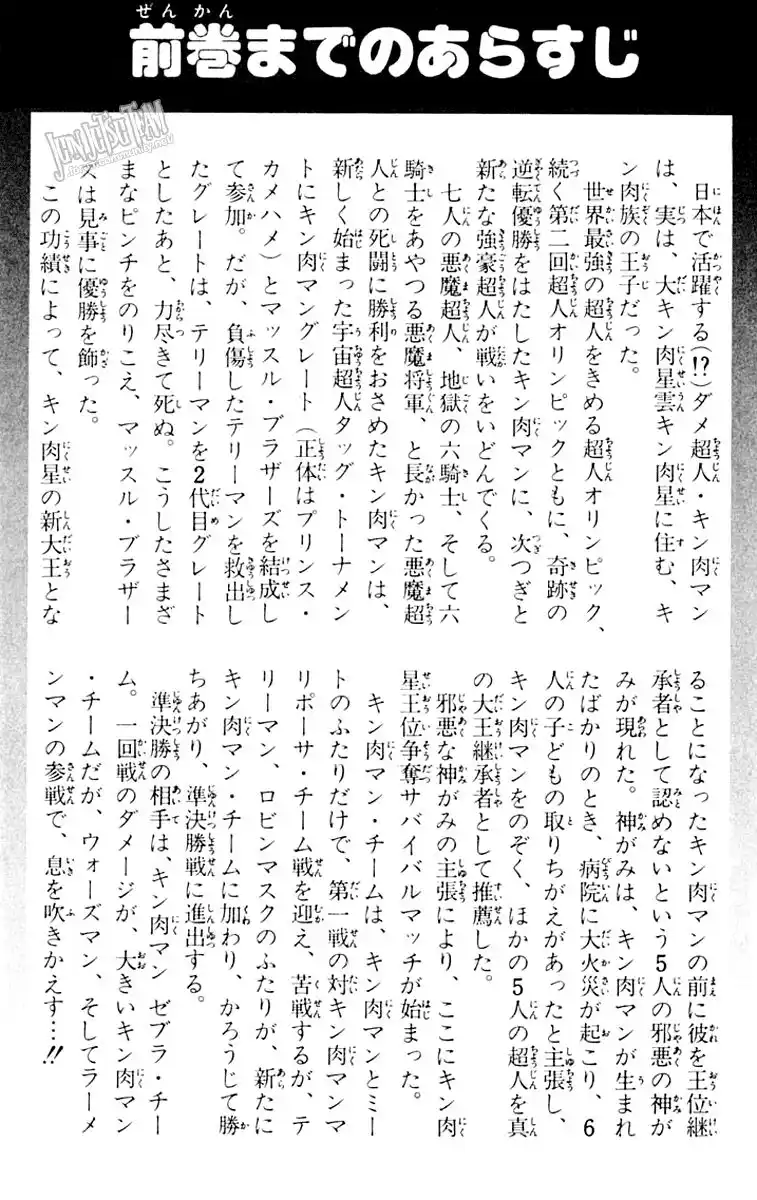 前巻までのあらすじ
日本で活躍する(!?)ダメ超人・キン肉マン
は、実は、大キン肉星雲キン肉星に住む、キ
ン肉族の王子だった。
世界最強の超人をきめる超人オリンピック、
続く第二回超人オリンピックともに、奇跡の
逆転優勝をはたしたキン肉マンに、次つぎと
新たな強豪超人が戦いをいどんでくる。
七人の悪魔超人、地獄の六騎士、そして六
騎士をあやつる悪魔将軍、と長かった悪魔超
人との死闘に勝利をおさめたキン肉マンは、
新しく始まった宇宙超人タッグ・トーナメン
トにキン肉マングレート(正体はプリンス・
カメハメ)とマッスル・ブラザーズを結成し
て参加。だが、負傷したテリーマンを救出し
たグレートは、テリーマンを2代目グレート
としたあと、力尽きて死ぬ。こうしたさまざ
まなピンチをのりこえ、マッスル・ブラザー
ズは見事に優勝を飾った。
この功績によって、キン肉星の新大王とな
ることになったキン肉マンの前に彼を王位継
承者として認めないという5人の邪悪の神が
みが現れた。神がみは、キン肉マンが生まれ
たばかりのとき、病院に大火災が起こり、6
人の子どもの取りちがえがあったと主張し、
キン肉マンをのぞく、ほかの5人の超人を真
の大王継承者として推薦した。
邪悪な神がみの主張により、ここにキン肉
星王位争奪サバイバルマッチが始まった。
キン肉マン・チームは、キン肉マンとミー
トのふたりだけで、第一戦の対キン肉マンマ
リポーサ・チーム戦を迎え、苦戦するが、テ
リーマン、ロビンマスクのふたりが、新たに
キン肉マン・チームに加わり、かろうじて勝
ちあがり、準決勝戦に進出する。
準決勝の相手は、キン肉マン ゼブラ・チー
ム。一回戦のダメージが、大きいキン肉マン
・チームだが、ウォーズマン、そしてラーメ
ンマンの参戦で、息を吹きかえす…!!